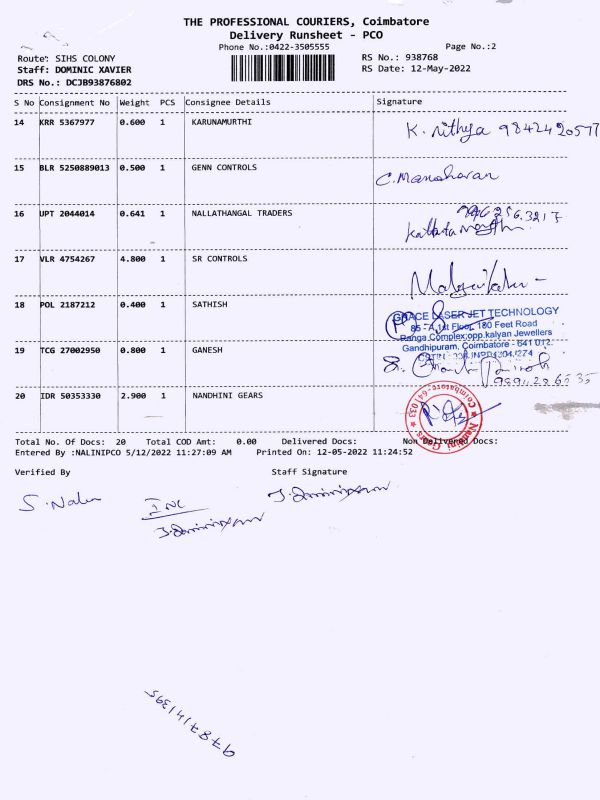 THE PROFESSIONAL COURIERS, Coimbatore
Delivery Runsheet - PCO
Phone No.:0422-3505555
Page No.:2
Route: SIHS COLONY
RS No.: 938768
Staff: DOMINIC XAVIER
RS Date: 12-May-2022
DRS No.: DCJB93876802
S No Consignment No Weight PCS Consignee Details Signature
14 KRR 5367977 0.600 1 KARUNAMURTHI K. Nithya 9842420577
15 BLR 5250889013 0.500 1 GENN CONTROLS C. Manoharan
16 UPT 2044014 0.641 1 NALLATHANGAL TRADERS
17 VLR 4754267 4.800 1 SR CONTROLS
18 POL 2187212 0.400 1 SATHISH
GRACE LASER JET TECHNOLOGY
85 - A,1st Floor, 180 Feet Road
Ranga Complex,opp.kalyan Jewellers
Gandhipuram, Coimbatore - 641 012.
19 TCG 27002950 0.800 1 GANESH
20 IDR 50353330 2.900 1 NANDHINI GEARS
Nandini Gears Coimbatore-641 033
Total No. Of Docs: 20 Total COD Amt: 0.00 Delivered Docs: Non Delivered Docs:
Entered By :NALINIPCO 5/12/2022 11:27:09 AM Printed On: 12-05-2022 11:24:52
Verified By Staff Signature
9787141395